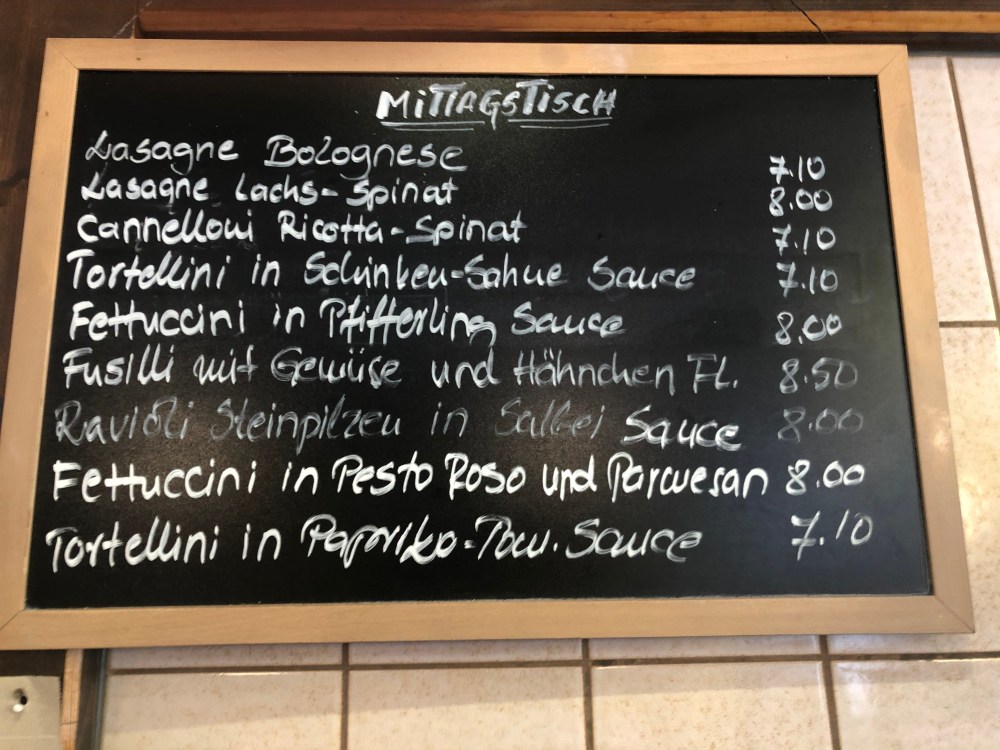 MITTAGSTISCH
Lasagne Bolognese 7.10
Lasagne Lachs-Spinat 8.00
Cannelloni Ricotta-Spinat 7.10
Tortellini in Schinken-Sahne Sauce 7.10
Fettuccini in Pfifferling Sauce 8.00
Fusilli mit Gemüse und Hähnchen Fl. 8.50
Ravioli Steinpilzen in Salbei Sauce 8.00
Fettuccini in Pesto Roso und Parmesan 8.00
Tortellini in Paprika-Tom. Sauce 7.10